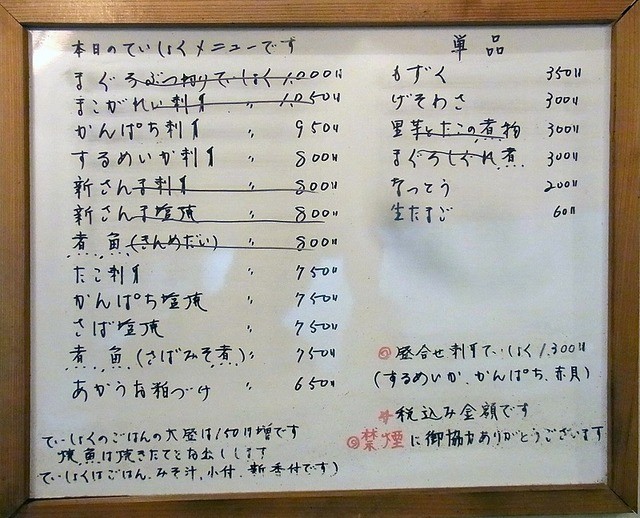 本日のていしょくメニューです
まぐろぶつ切りていしょく 1,000円
まこがれい刺身 〃 1,050円
かんぱち刺身 〃 950円
するめいか刺身 〃 800円
新さんま刺身 〃 800円
新さんま塩焼 〃 800円
煮魚(きんめだい) 〃 800円
たこ刺身 〃 750円
かんぱち塩焼 〃 750円
さば塩焼 〃 750円
煮魚(さばみそ煮) 〃 750円
あかうお粕づけ 〃 650円
ていしょくのごはんの大盛は150円増です
焼魚は焼きたてをお出しします
ていしょくはごはん、みそ汁、小付、新香付です)
単品
もずく 350円
げそわさ 300円
里芋とたこの煮物 300円
まぐろしぐれ煮 300円
なっとう 200円
生たまご 60円
◎盛合せ刺身ていしょく 1,300円
(するめいか、かんぱち、赤貝)
税込み金額です
◎禁煙に御協力ありがとうございます